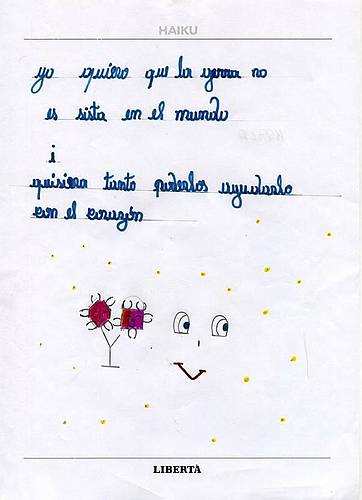 HAIKU
yo quiero que la yerra no
es sista en el mundo
i
quisiera tanto poderlos ayudarlo
con el corazón
LIBERTÀ